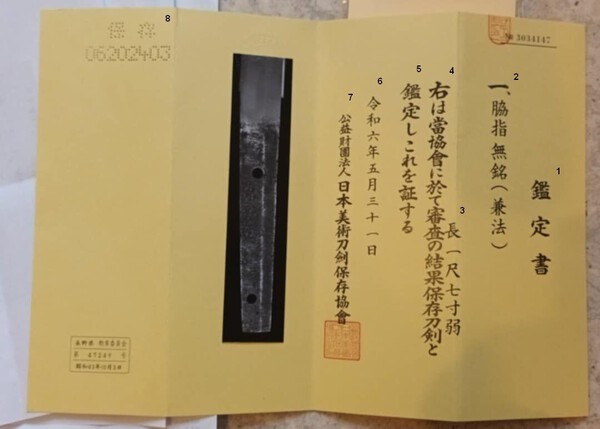 鑑定書
№ 3034187
一、脇指無銘(兼法)
長一尺七寸弱
右は當協會に於て審査の結果保存刀剣と
鑑定しこれを証する
令和六年五月三十一日
公益財團法人日本美術刀劍保存協會
保存
06202403
1
2
3
4
5
6
7
8